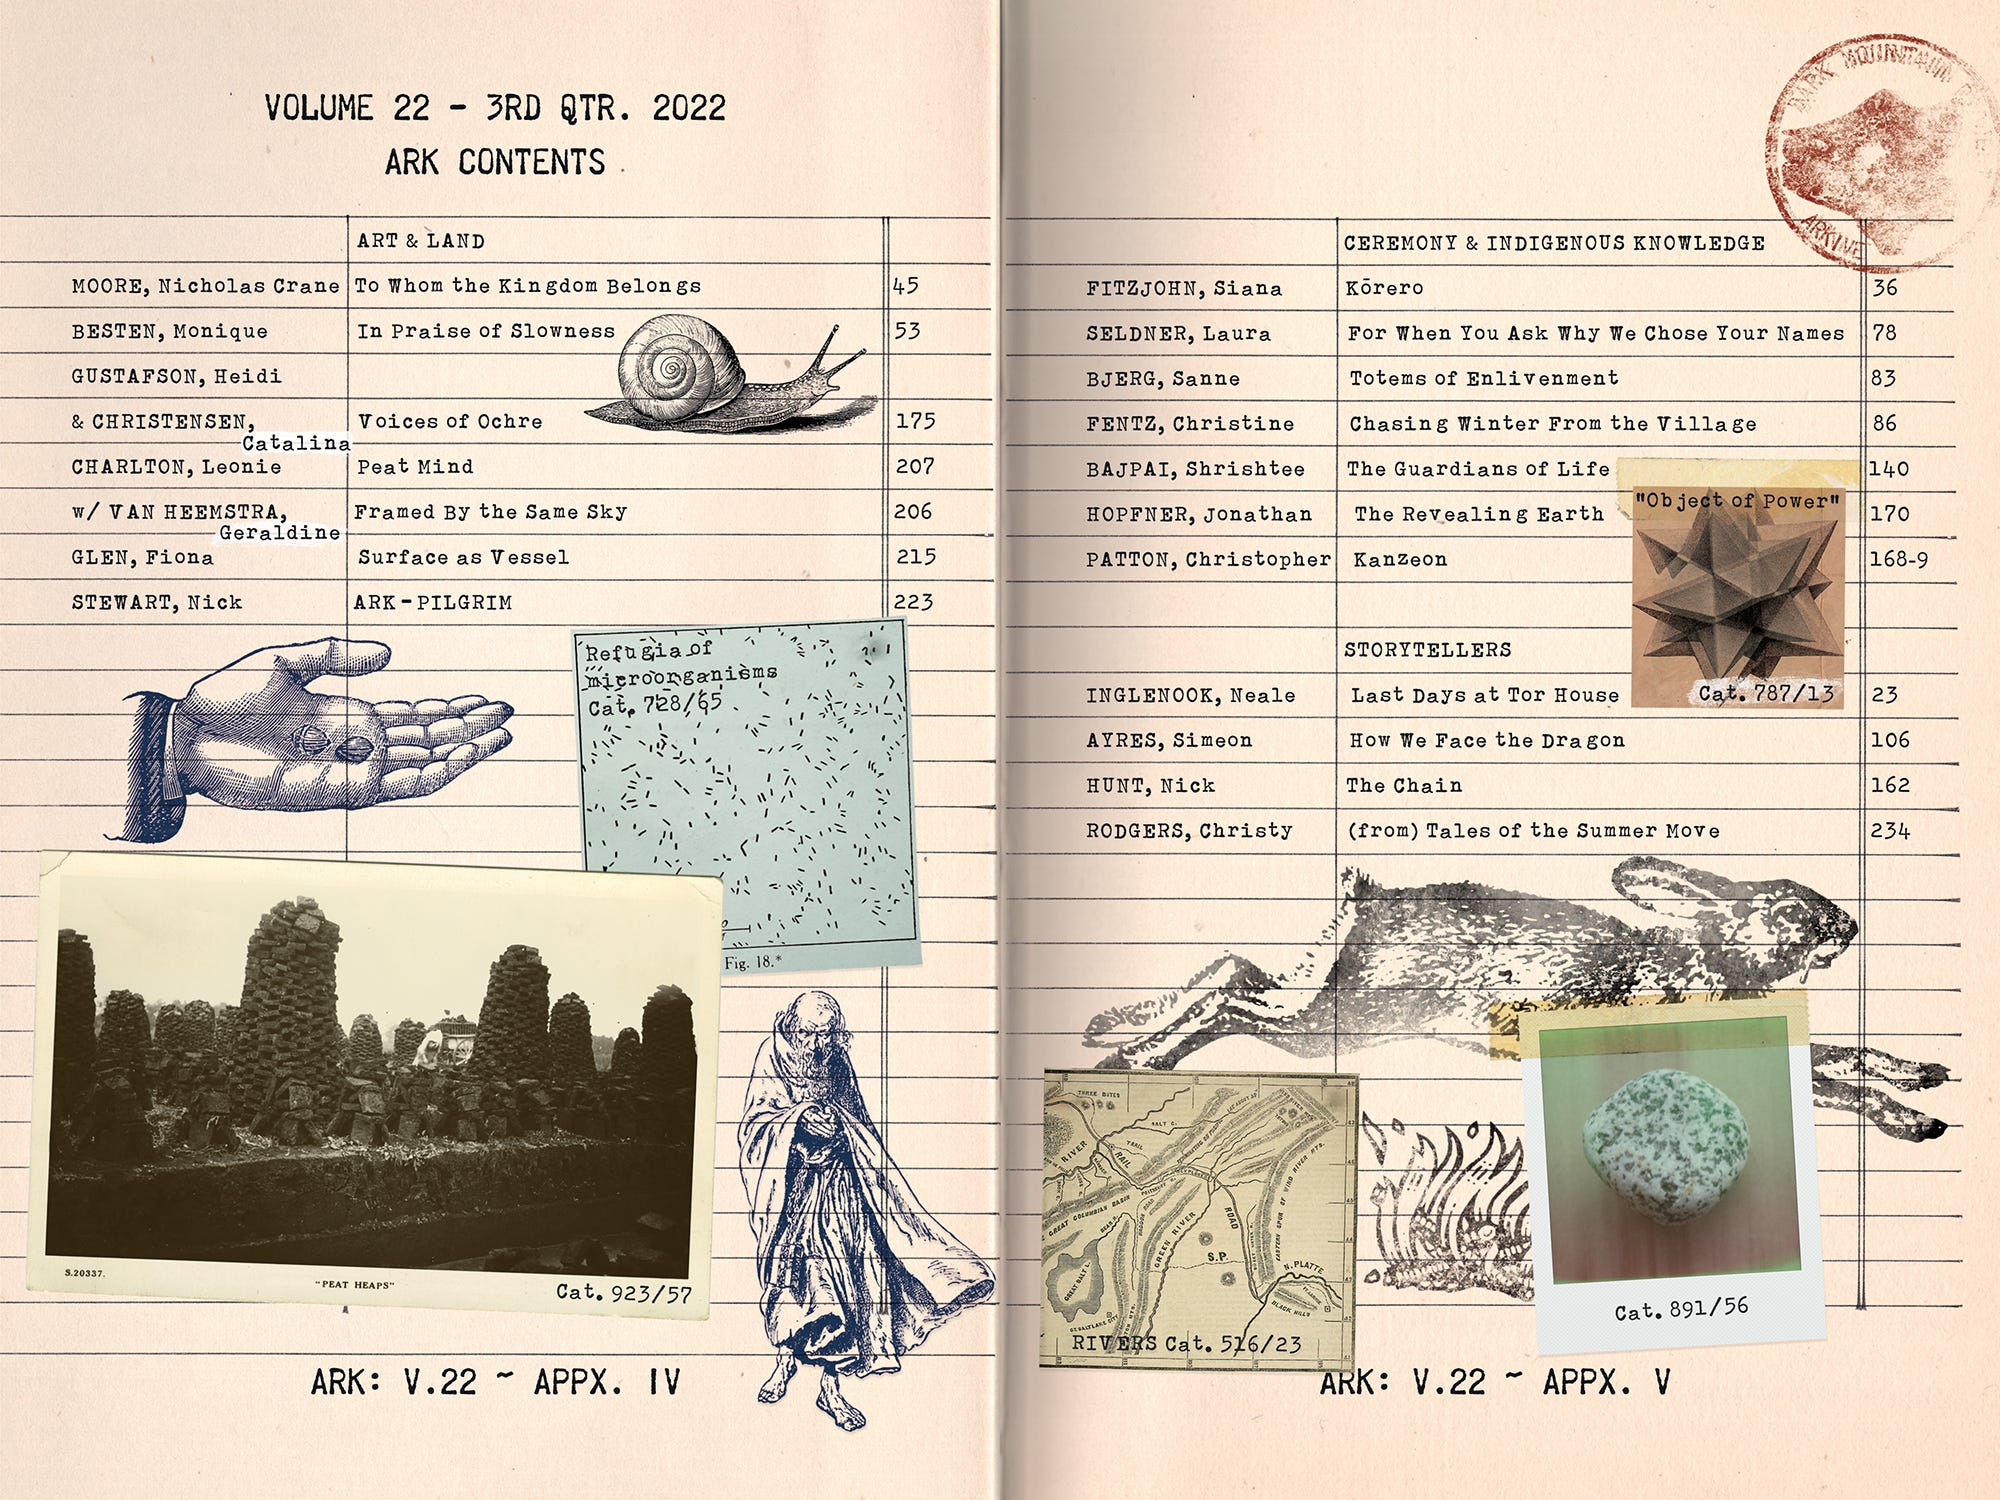 VOLUME 22 - 3RD QTR. 2022
ARK CONTENTS
ART & LAND
MOORE, Nicholas Crane To Whom the Kingdom Belongs 45
BESTEN, Monique In Praise of Slowness 53
GUSTAFSON, Heidi
& CHRISTENSEN, Voices of Ochre 175
Catalina
CHARLTON, Leonie Peat Mind 207
w/ VAN HEEMSTRA, Framed By the Same Sky 206
Geraldine
GLEN, Fiona Surface as Vessel 215
STEWART, Nick ARK-PILGRIM 223
Refugia of
microorganisms
Cat. 728/65
Fig. 18.*
S.20337.
"PEAT HEAPS"
Cat. 923/57
ARK: V.22 ~ APPX. IV
ARK MOUNTAIN
ARKIVE
CEREMONY & INDIGENOUS KNOWLEDGE
FITZJOHN, Siana Kōrero 36
SELDNER, Laura For When You Ask Why We Chose Your Names 78
BJERG, Sanne Totems of Enlivenment 83
FENTZ, Christine Chasing Winter From the Village 86
BAJPAI, Shrishtee The Guardians of Life 140
HOPFNER, Jonathan The Revealing Earth 170
PATTON, Christopher Kanzeon 168-9
"Object of Power"
Cat. 787/13
STORYTELLERS
INGLENOOK, Neale Last Days at Tor House 23
AYRES, Simeon How We Face the Dragon 106
HUNT, Nick The Chain 162
RODGERS, Christy (from) Tales of the Summer Move 234
THREE BUTES
SALT C.
RIVER
TRAIL
RAIL
GREAT COLUMBIAN BASIN
GREEN RIVER
ROAD
EASTERN SPUR OF WIND RIVER MTS.
S.P.
GREAT SALT L.
GT. SALT LAKE CITY
N. PLATTE
BLACK HILLS
RIVERS Cat. 516/23
Cat. 891/56
ARK: V.22 ~ APPX. V